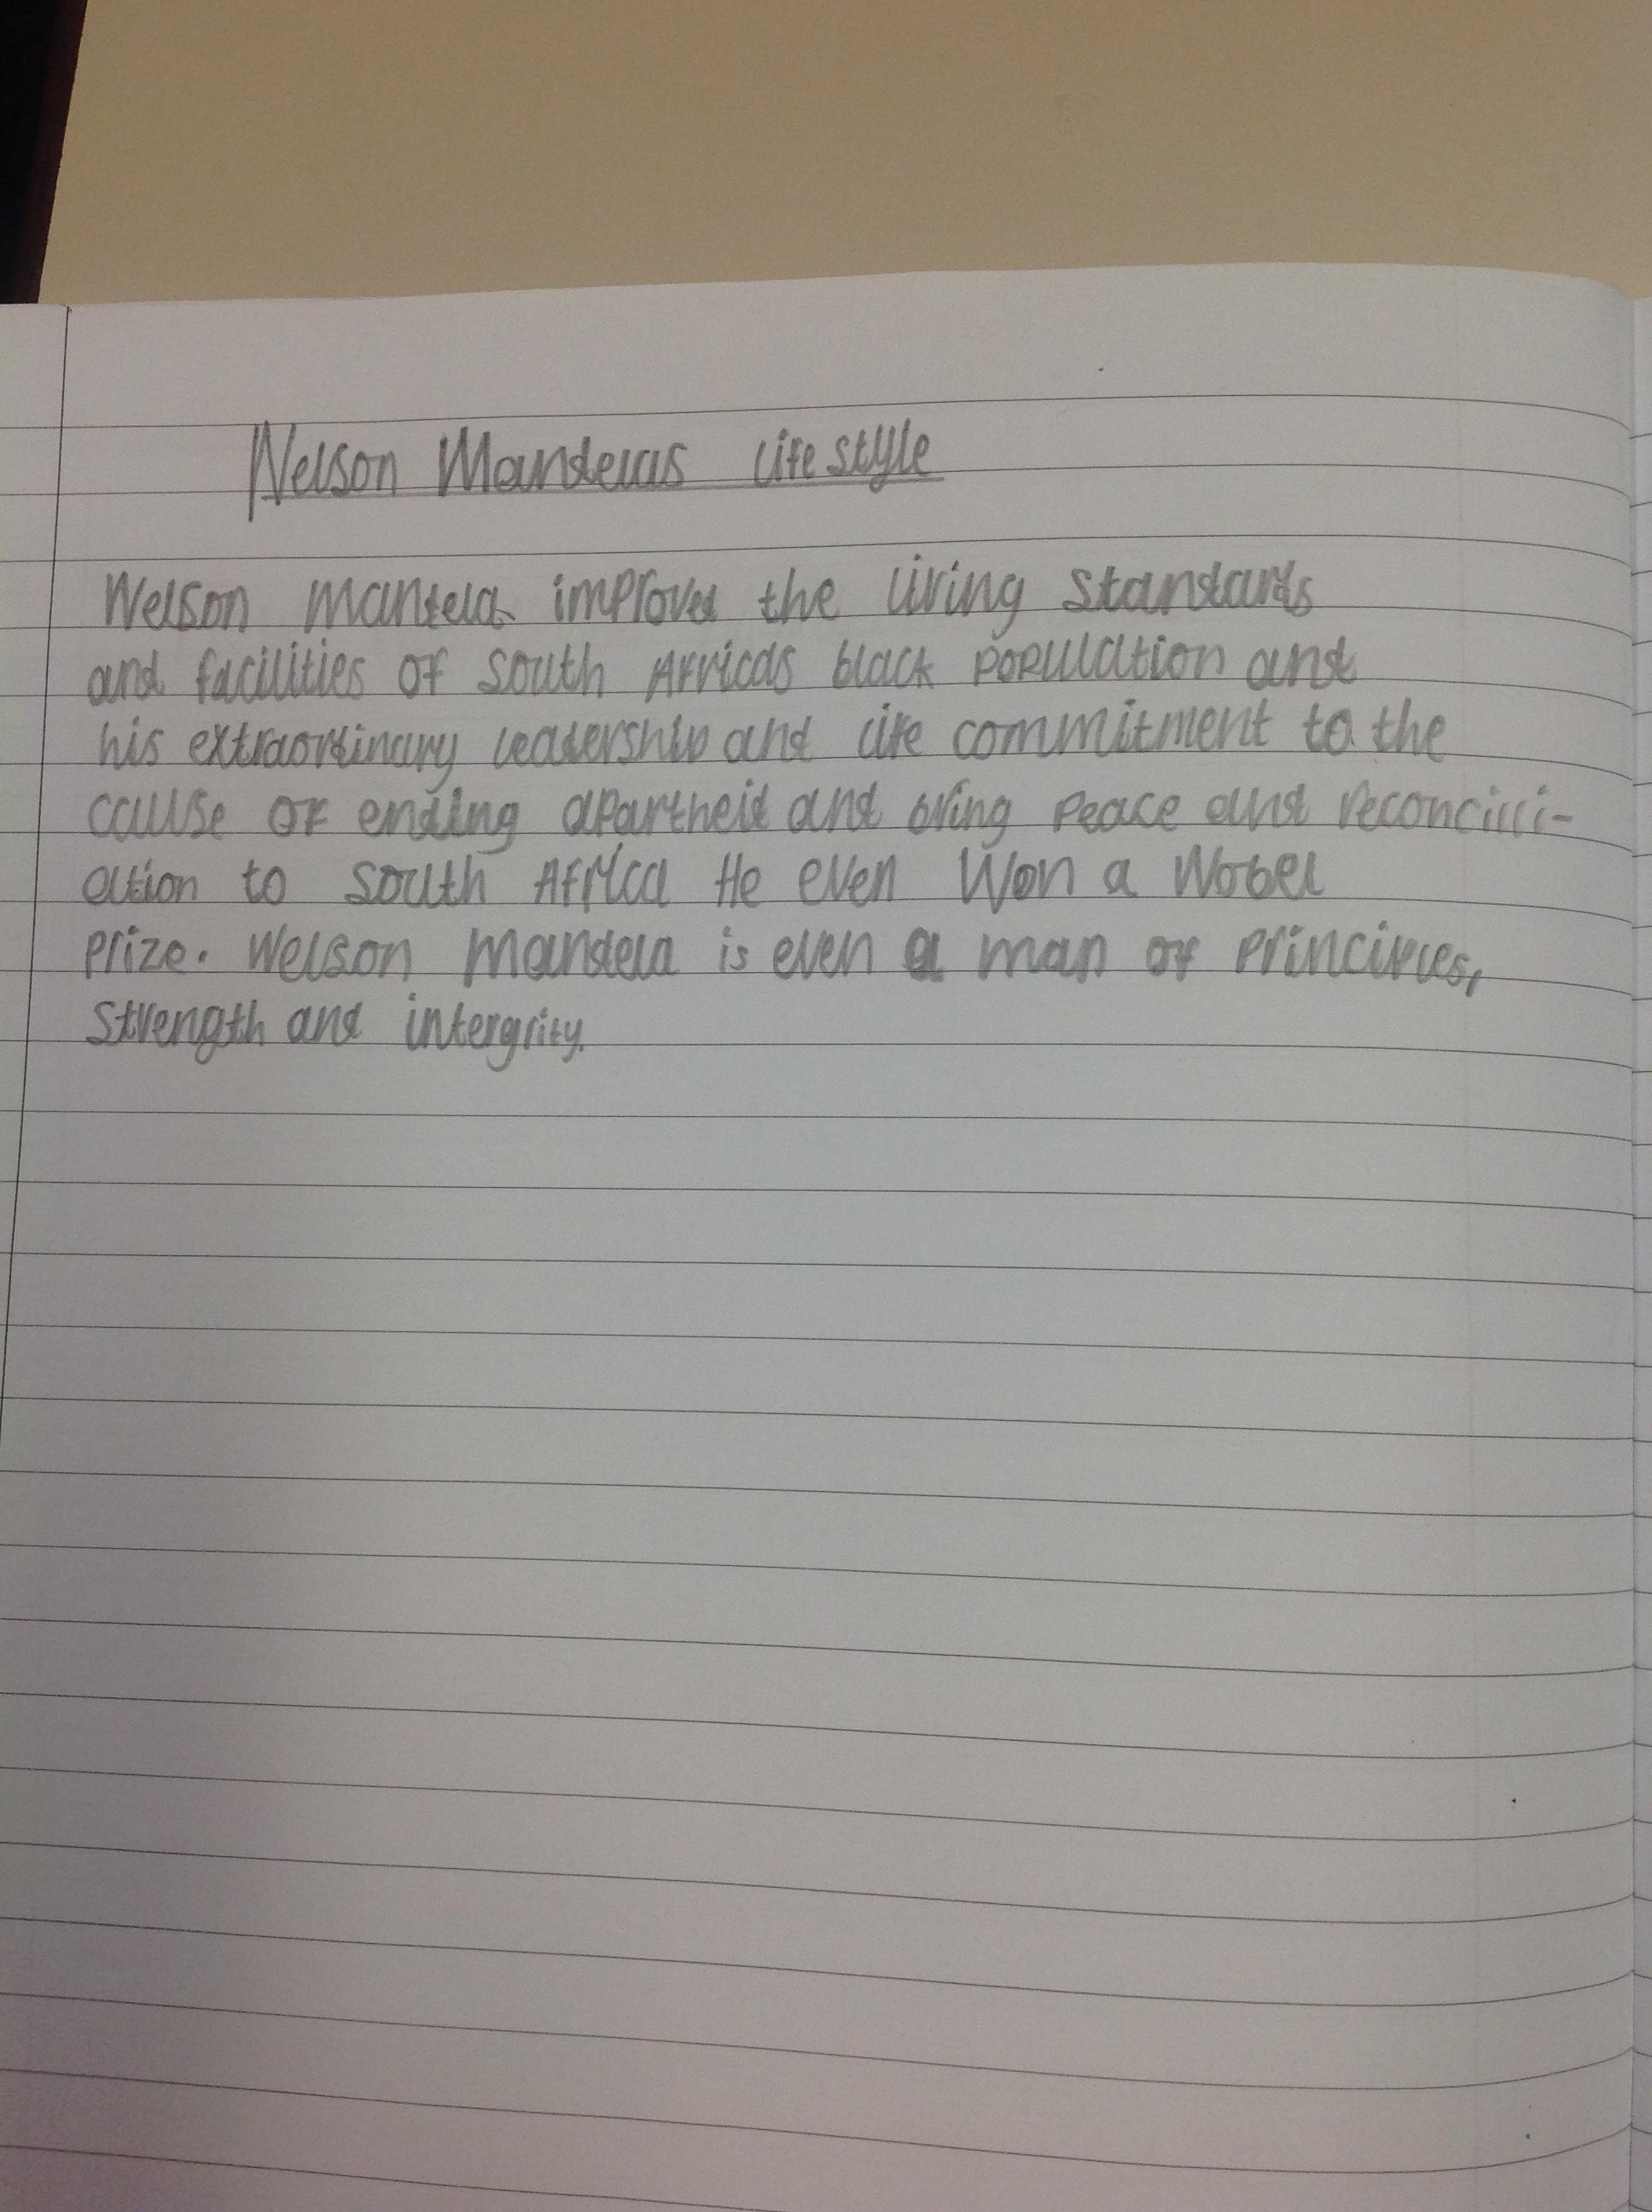 Nelson Mandelas life style
Nelson Mandela improved the living standards
and facilities of South Africas black population and
his extraordinary leadership and life commitment to the
cause of ending apartheid and bring peace and reconcilli-
ation to South Africa He even Won a Nobel
prize. Nelson Mandela is even a man of principles,
strength and intergrity.